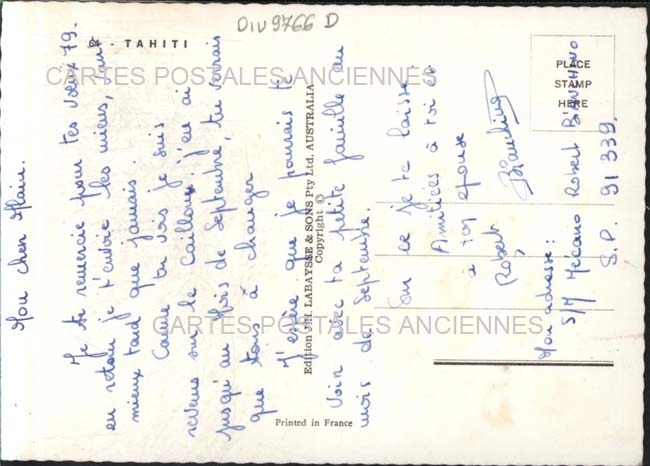 DIV9766 D
64 - TAHITI
CARTES POSTALES ANCIENNES
PLACE
STAMP
HERE
Mon cher Alain.
Je te remercie pour tes voeux 79.
en retour je t'envoie les miens, vaut
mieux tard que jamais.
Comme tu vois je suis
revenu sur le Caillou. j'en ai
jusqu'au Mois de Septembre, tu verrais
que tous à changer
J'espère que je pourrais te
voir avec ta petite famille au
mois de Septembre.
Sur ce je te laisse.
Amitiées à toi et
à ton épouse
Robert
Mon adresse:
S/M Mécano Robert
S.P. 91 339.
Edition J.H. LABAYSSE & SONS Pty Ltd. AUSTRALIA
Copyright ©
CARTES POSTALES ANCIENNES
Printed in France